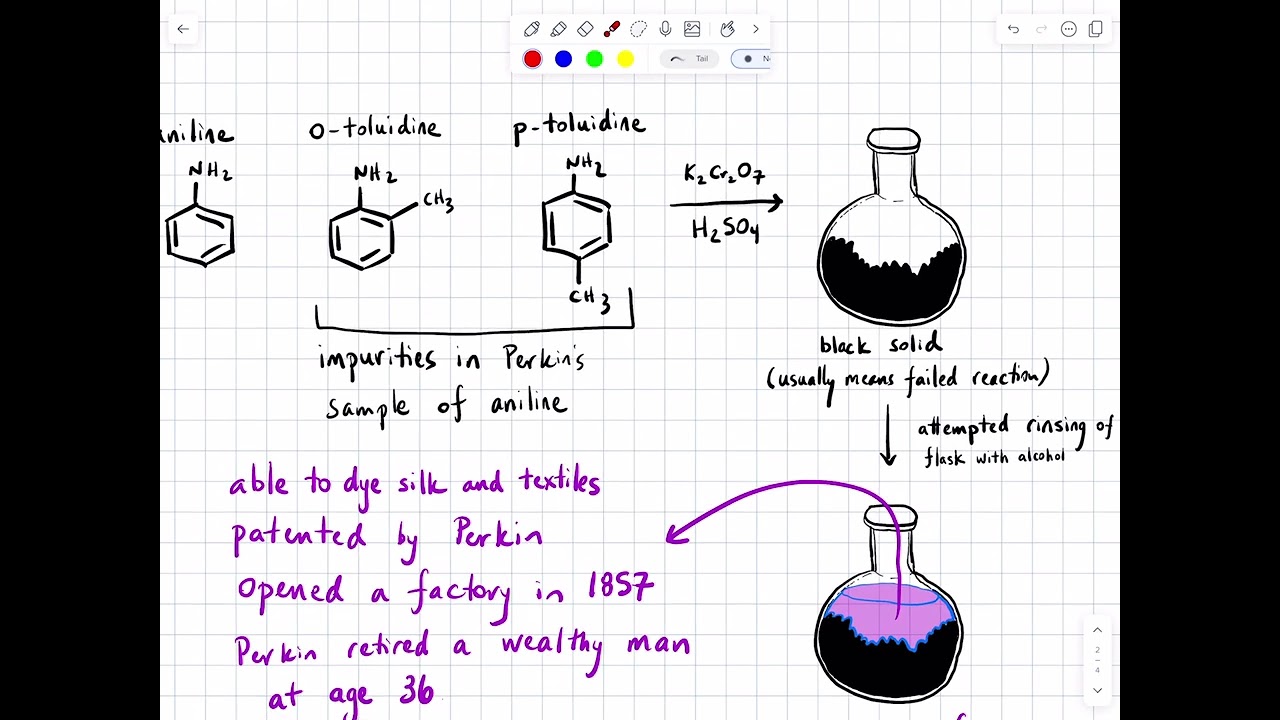 Tail
aniline
o-toluidine
p-toluidine
NH2
NH2
CH3
NH2
CH3
K2Cr2O7
H2SO4
impurities in Perkin's
sample of aniline
black solid
(usually means failed reaction)
attempted rinsing of
flask with alcohol
able to dye silk and textiles
patented by Perkin
Opened a factory in 1857
Perkin retired a wealthy man
at age 36
2
4